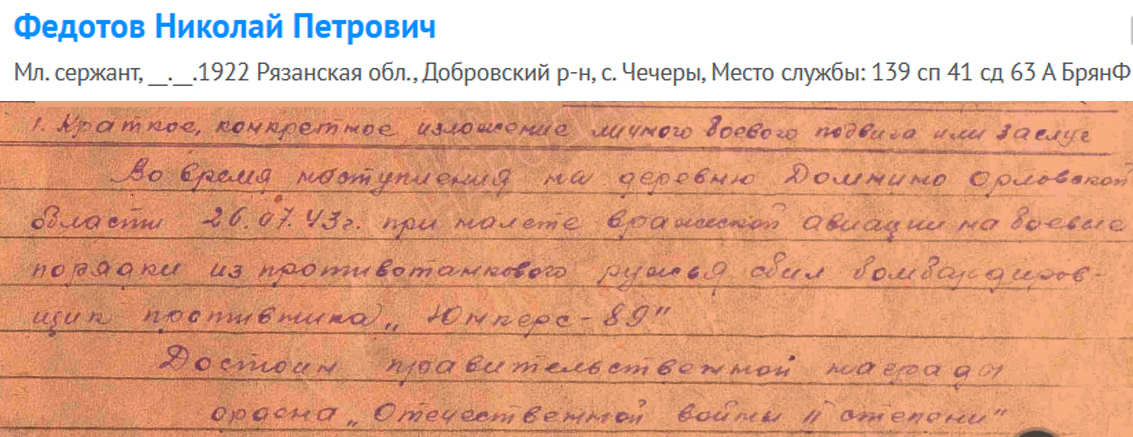 Федотов Николай Петрович
Мл. сержант, __.__.1922 Рязанская обл., Добровский р-н, с. Чечеры, Место службы: 139 сп 41 сд 63 А БрянФ
1. Краткое, конкретное изложение личного боевого подвига или заслуг
Во время наступления на деревню Домнино Орловской
области 26.07.43г. при налете вражеской авиации на боевые
порядки из противотанкового ружья сбил бомбардиров-
щик противника „Юнкерс-89"
Достоин правительственной награды
ордена „Отечественной войны II степени"